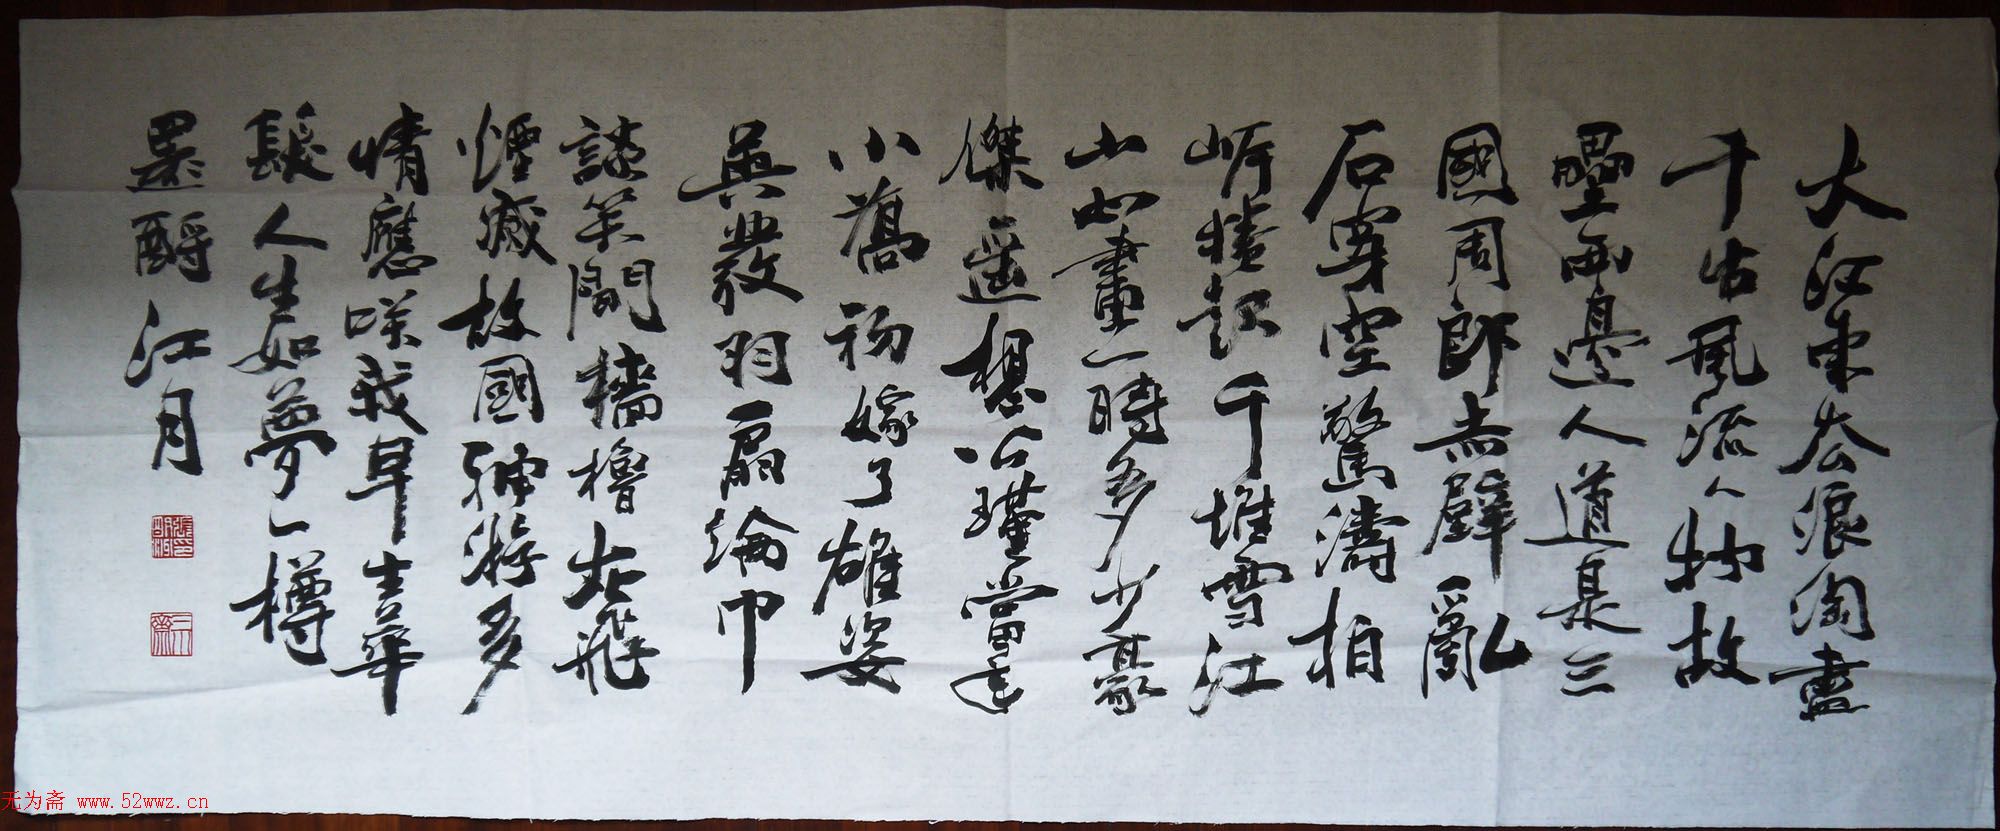 大江東去浪淘盡
千古風流人物故
壘西邊人道是三
國周郎赤壁亂
石穿空驚濤拍
岸捲起千堆雪江
山如畫一時多少豪
傑遥想公瑾當年
小喬初嫁了雄姿
英發羽扇綸巾
談笑間檣櫓灰飛
煙滅故國神游多
情應笑我早生華
髮人生如夢一樽
還酹江月
无为斋 www.52wwz.cn